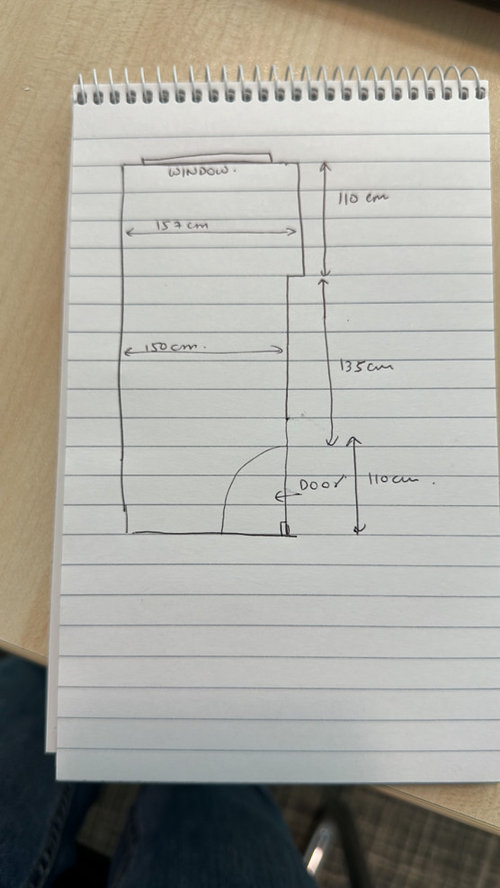 WINDOW.
110 cm
157 cm
150 cm.
135 cm
DOOr
110 cm.